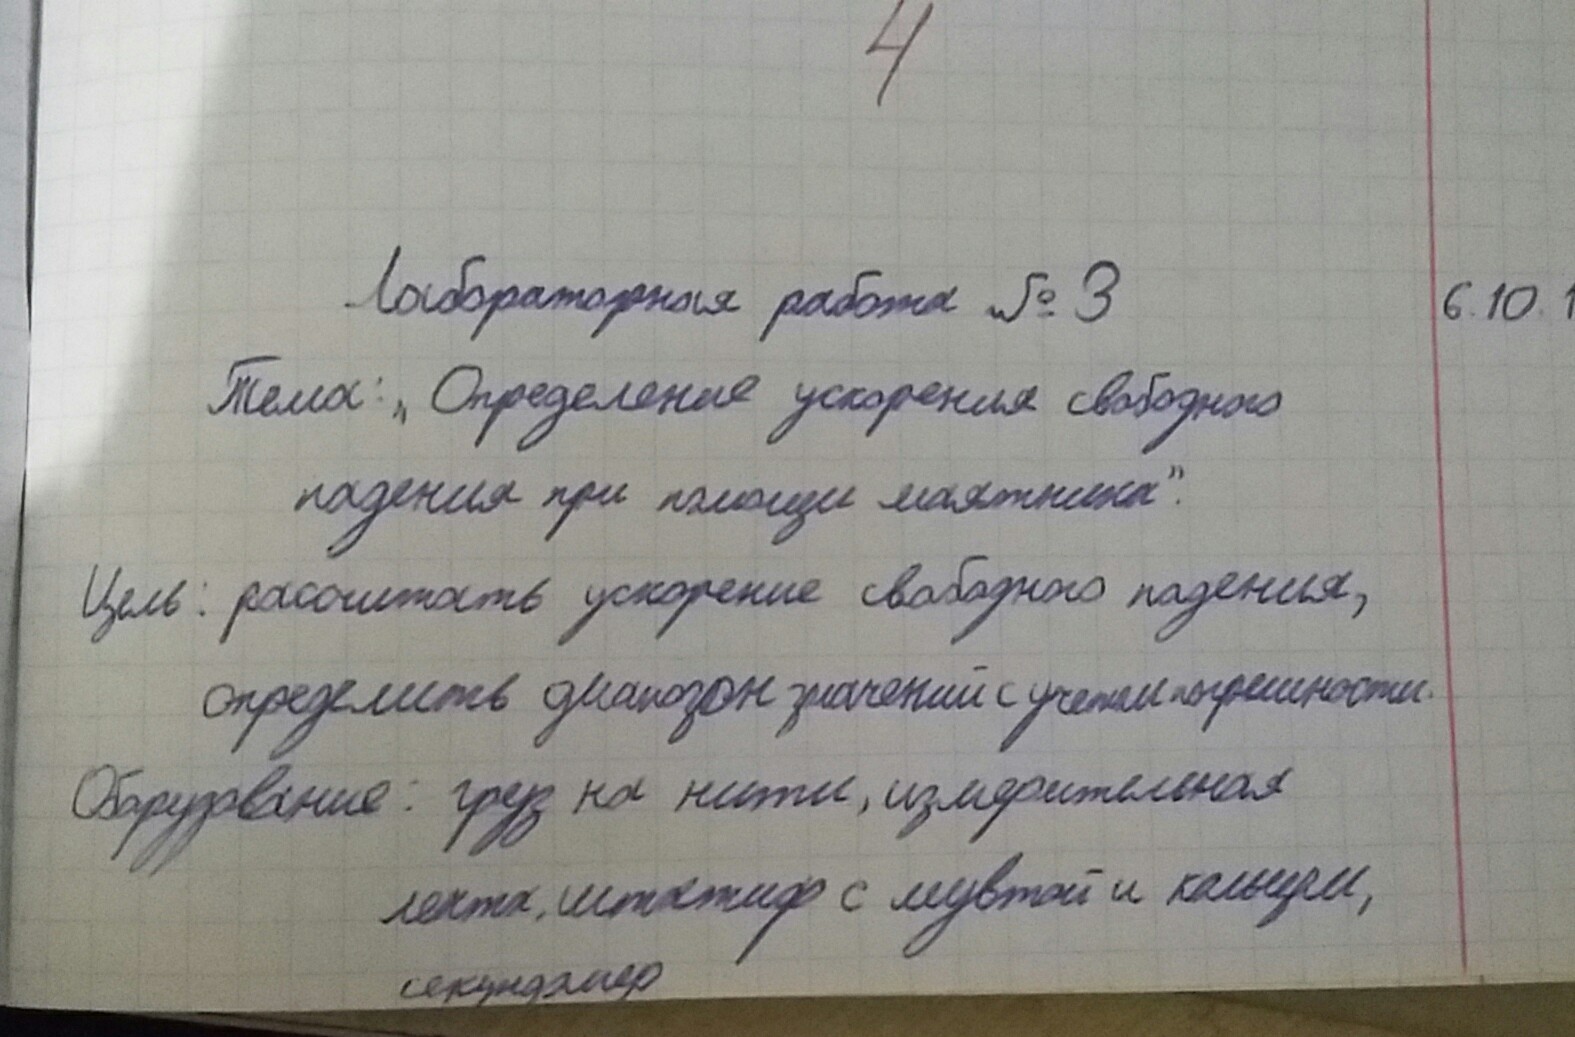 4
Лабораторная работа № 3 6.10.1
Тема: „Определение ускорения свободного
падения при помощи маятника”.
Цель: рассчитать ускорение свободного падения,
определить диапозон значений с учетом погрешности.
Оборудование: груз на нити, измерительная
лента, штатив с мувтой и кольцом,
секундомер